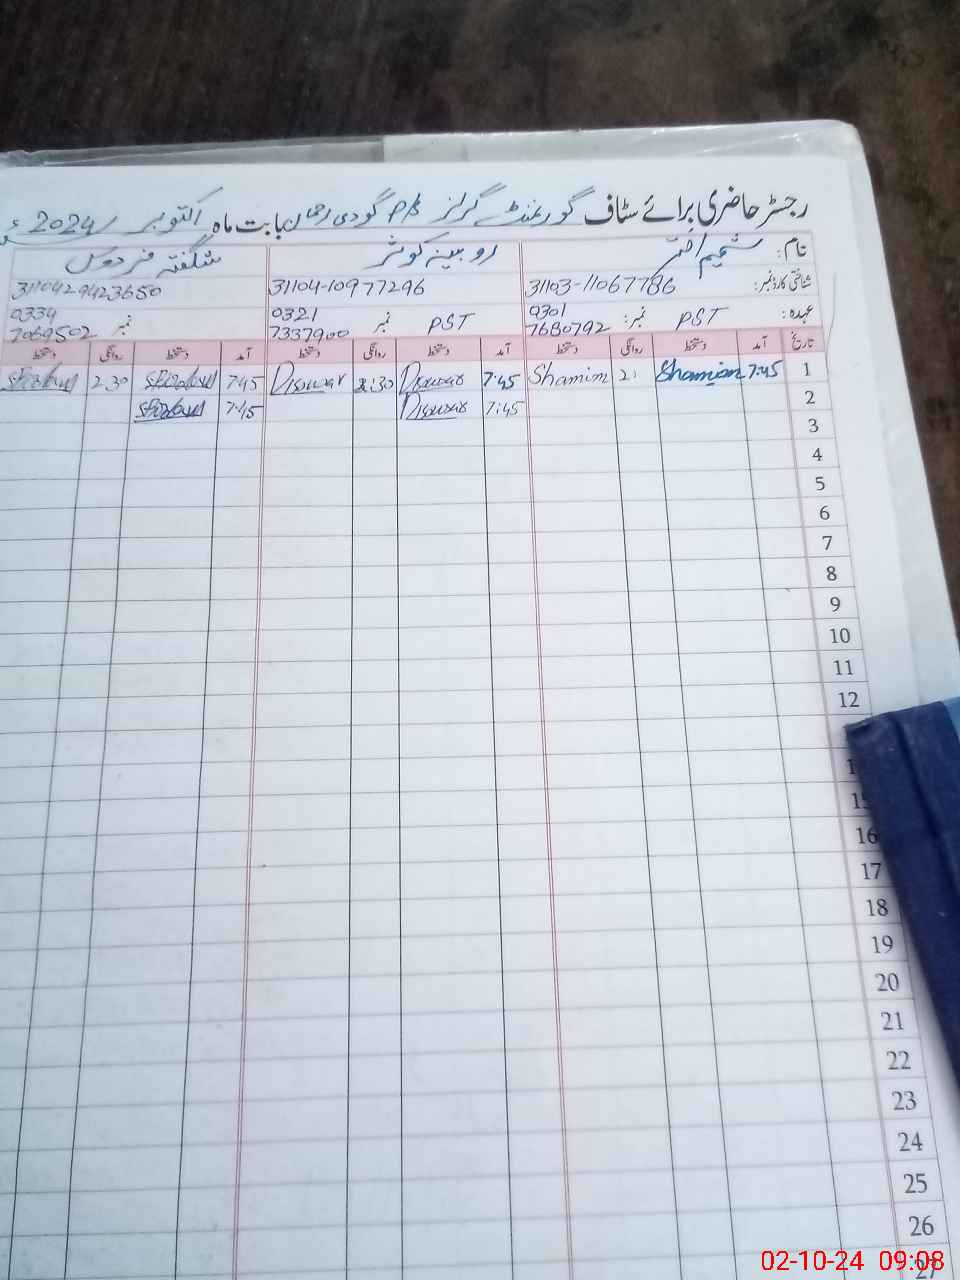 رجسٹر حاضری برائے سٹاف گورنمنٹ گرلز P/S گودی رحمان بابت ماہ اکتوبر 2024ء
نام: شمیم اختر روبینہ کوثر شگفتہ فردوس
شناختی کارڈ نمبر: 31103-11067786 31104-10977296 3110429423650
عہدہ: PST نمبر: 0301 7680792 PST نمبر 0321 7337900 نمبر 0334 7069502
تاریخ آمد دستخط روانگی دستخط آمد دستخط روانگی دستخط آمد دستخط روانگی دستخط
1 7:45 Shamim 2: Shamim 7:45 2:30 7:45 2:30
2 7:45 7:45
3
4
5
6
7
8
9
10
11
12
15
16
17
18
19
20
21
22
23
24
25
26
27
02-10-24 09:08